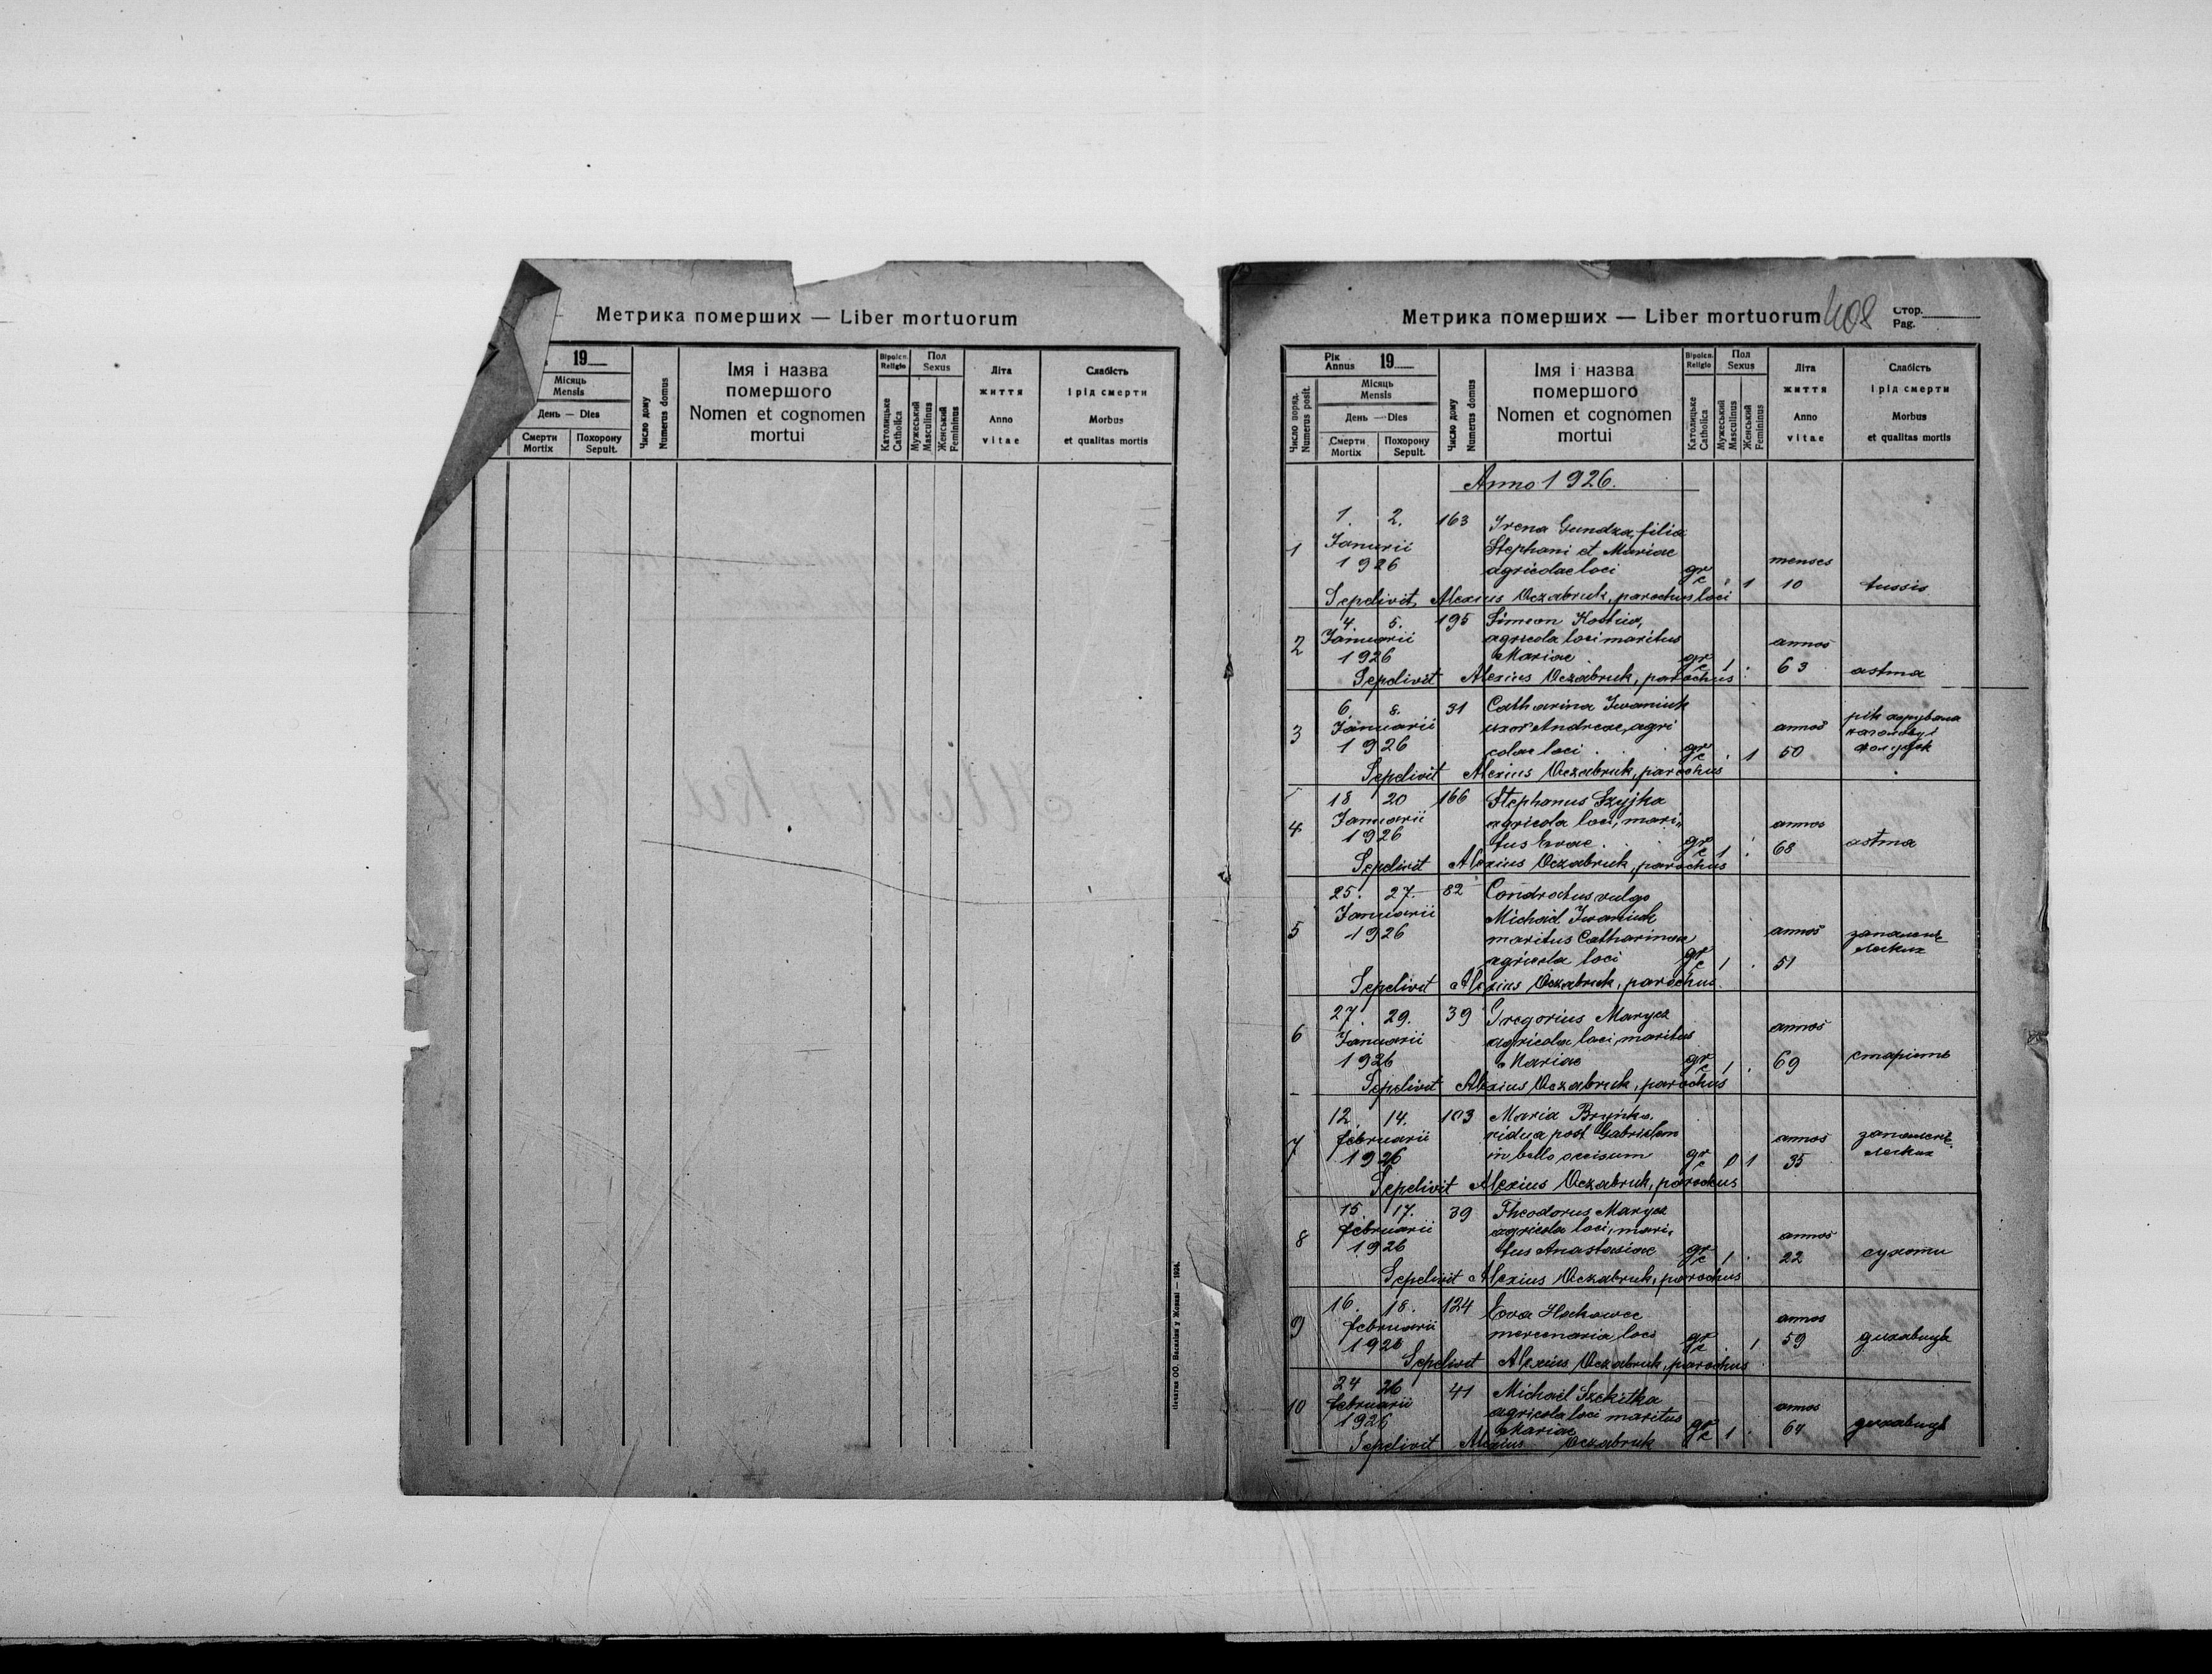 Метрика померших — Liber mortuorum
19
Місяць
Mensis
День — Dies
Смерти
Mortix
Похорону
Sepult.
Число дому
Numerus domus
Імя і назва
помершого
Nomen et cognomen
mortui
Віроісп.
Religio
Католицьке
Catholica
Пол
Sexus
Мужеський
Masculinus
Женський
Femininus
Літа
життя
Anno
vitae
Слабість
і рід смерти
Morbus
et qualitas mortis
Печатня ОО. Василіян у Жовкві — 1924.
Метрика померших — Liber mortuorum 408
Стор.
Pag.
Число поряд.
Numerus posit.
Рік
Annus 19
Місяць
Mensis
День — Dies
Смерти
Mortix
Похорону
Sepult.
Число дому
Numerus domus
Імя і назва
помершого
Nomen et cognomen
mortui
Віроісп.
Religio
Католицьке
Catholica
Пол
Sexus
Мужеський
Masculinus
Женський
Femininus
Літа
життя
Anno
vitae
Слабість
і рід смерти
Morbus
et qualitas mortis
Anno 1926.
1. 2. 163 Irena Gundza, filia
1 Januarii Stephani et Mariae menses
1926 agricolae loci gr c 1 10 tussis
Sepelivit, Alexius Oczabruk, parochus loci
4. 5. 195 Simeon Kostiw,
2 Januarii agricola loci maritus annos
1926 Mariae gr c 1 63 astma
Sepelivit Alexius Oczabruk, parochus
6. 8. 31 Catharina Iwaniuk
3 Januarii uxor Andreae, agri annos
1926 colae loci gr c 1 50
Sepelivit Alexius Oczabruk, parochus
18 20 166 Stephanus Szyjka
4 Januarii agricola loci, mari annos
1926 tus Evae gr c 1 68 astma
Sepelivit Alexius Oczabruk, parochus
25. 27. 82 Condratus vulgo
Januarii Michael Iwaniuk
5 1926 maritus Catharinae annos запаленє
agricola loci gr c 1 51 легких
Sepelivit Alexius Oczabruk, parochus
27. 29. 39 Gregorius Marycz
6 Januarii agricola loci, maritus annos
1926 Mariae gr c 1 69 старість
Sepelivit Alexius Oczabruk, parochus
12. 14. 103 Maria Bryńka
7 februarii vidua post Gabrielem annos запаленє
1926 in bello occisum gr c 1 35 легких
Sepelivit Alexius Oczabruk, parochus
15. 17. 39 Theodorus Marycz
8 februarii agricola loci, mari annos
1926 tus Anastasiae gr c 1 22 сухоти
Sepelivit Alexius Oczabruk, parochus
16. 18. 124 Eva
9 februarii mercenaria loci annos
1926 gr c 1 59 дихавиця
Sepelivit Alexius Oczabruk, parochus
24 26 41 Michaël Szekitka
10 februarii agricola loci maritus annos
1926 Mariae gr c 1 64 дихавиця
Sepelivit Alexius Oczabruk